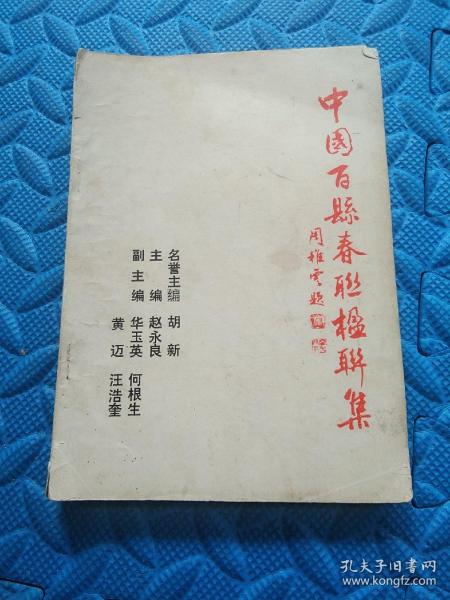 中國百縣春聯楹聯集
周維雲題
名誉主编 胡新
主编 赵永良
副主编 华玉英 何根生
黄迈 汪浩奎
孔夫子旧书网
www.kongfz.com